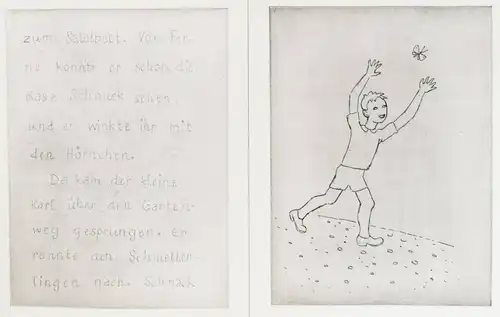 zum Salatbett. Von Fer
ne konnte er schon da
sage Schnuck sehen,
und er winkte ihr mit
den Hörnchen.
Da kam der kleine
Karl über den Garten-
weg gesprungen. er
rannte den Schmetter-
lingen nach. Schnack